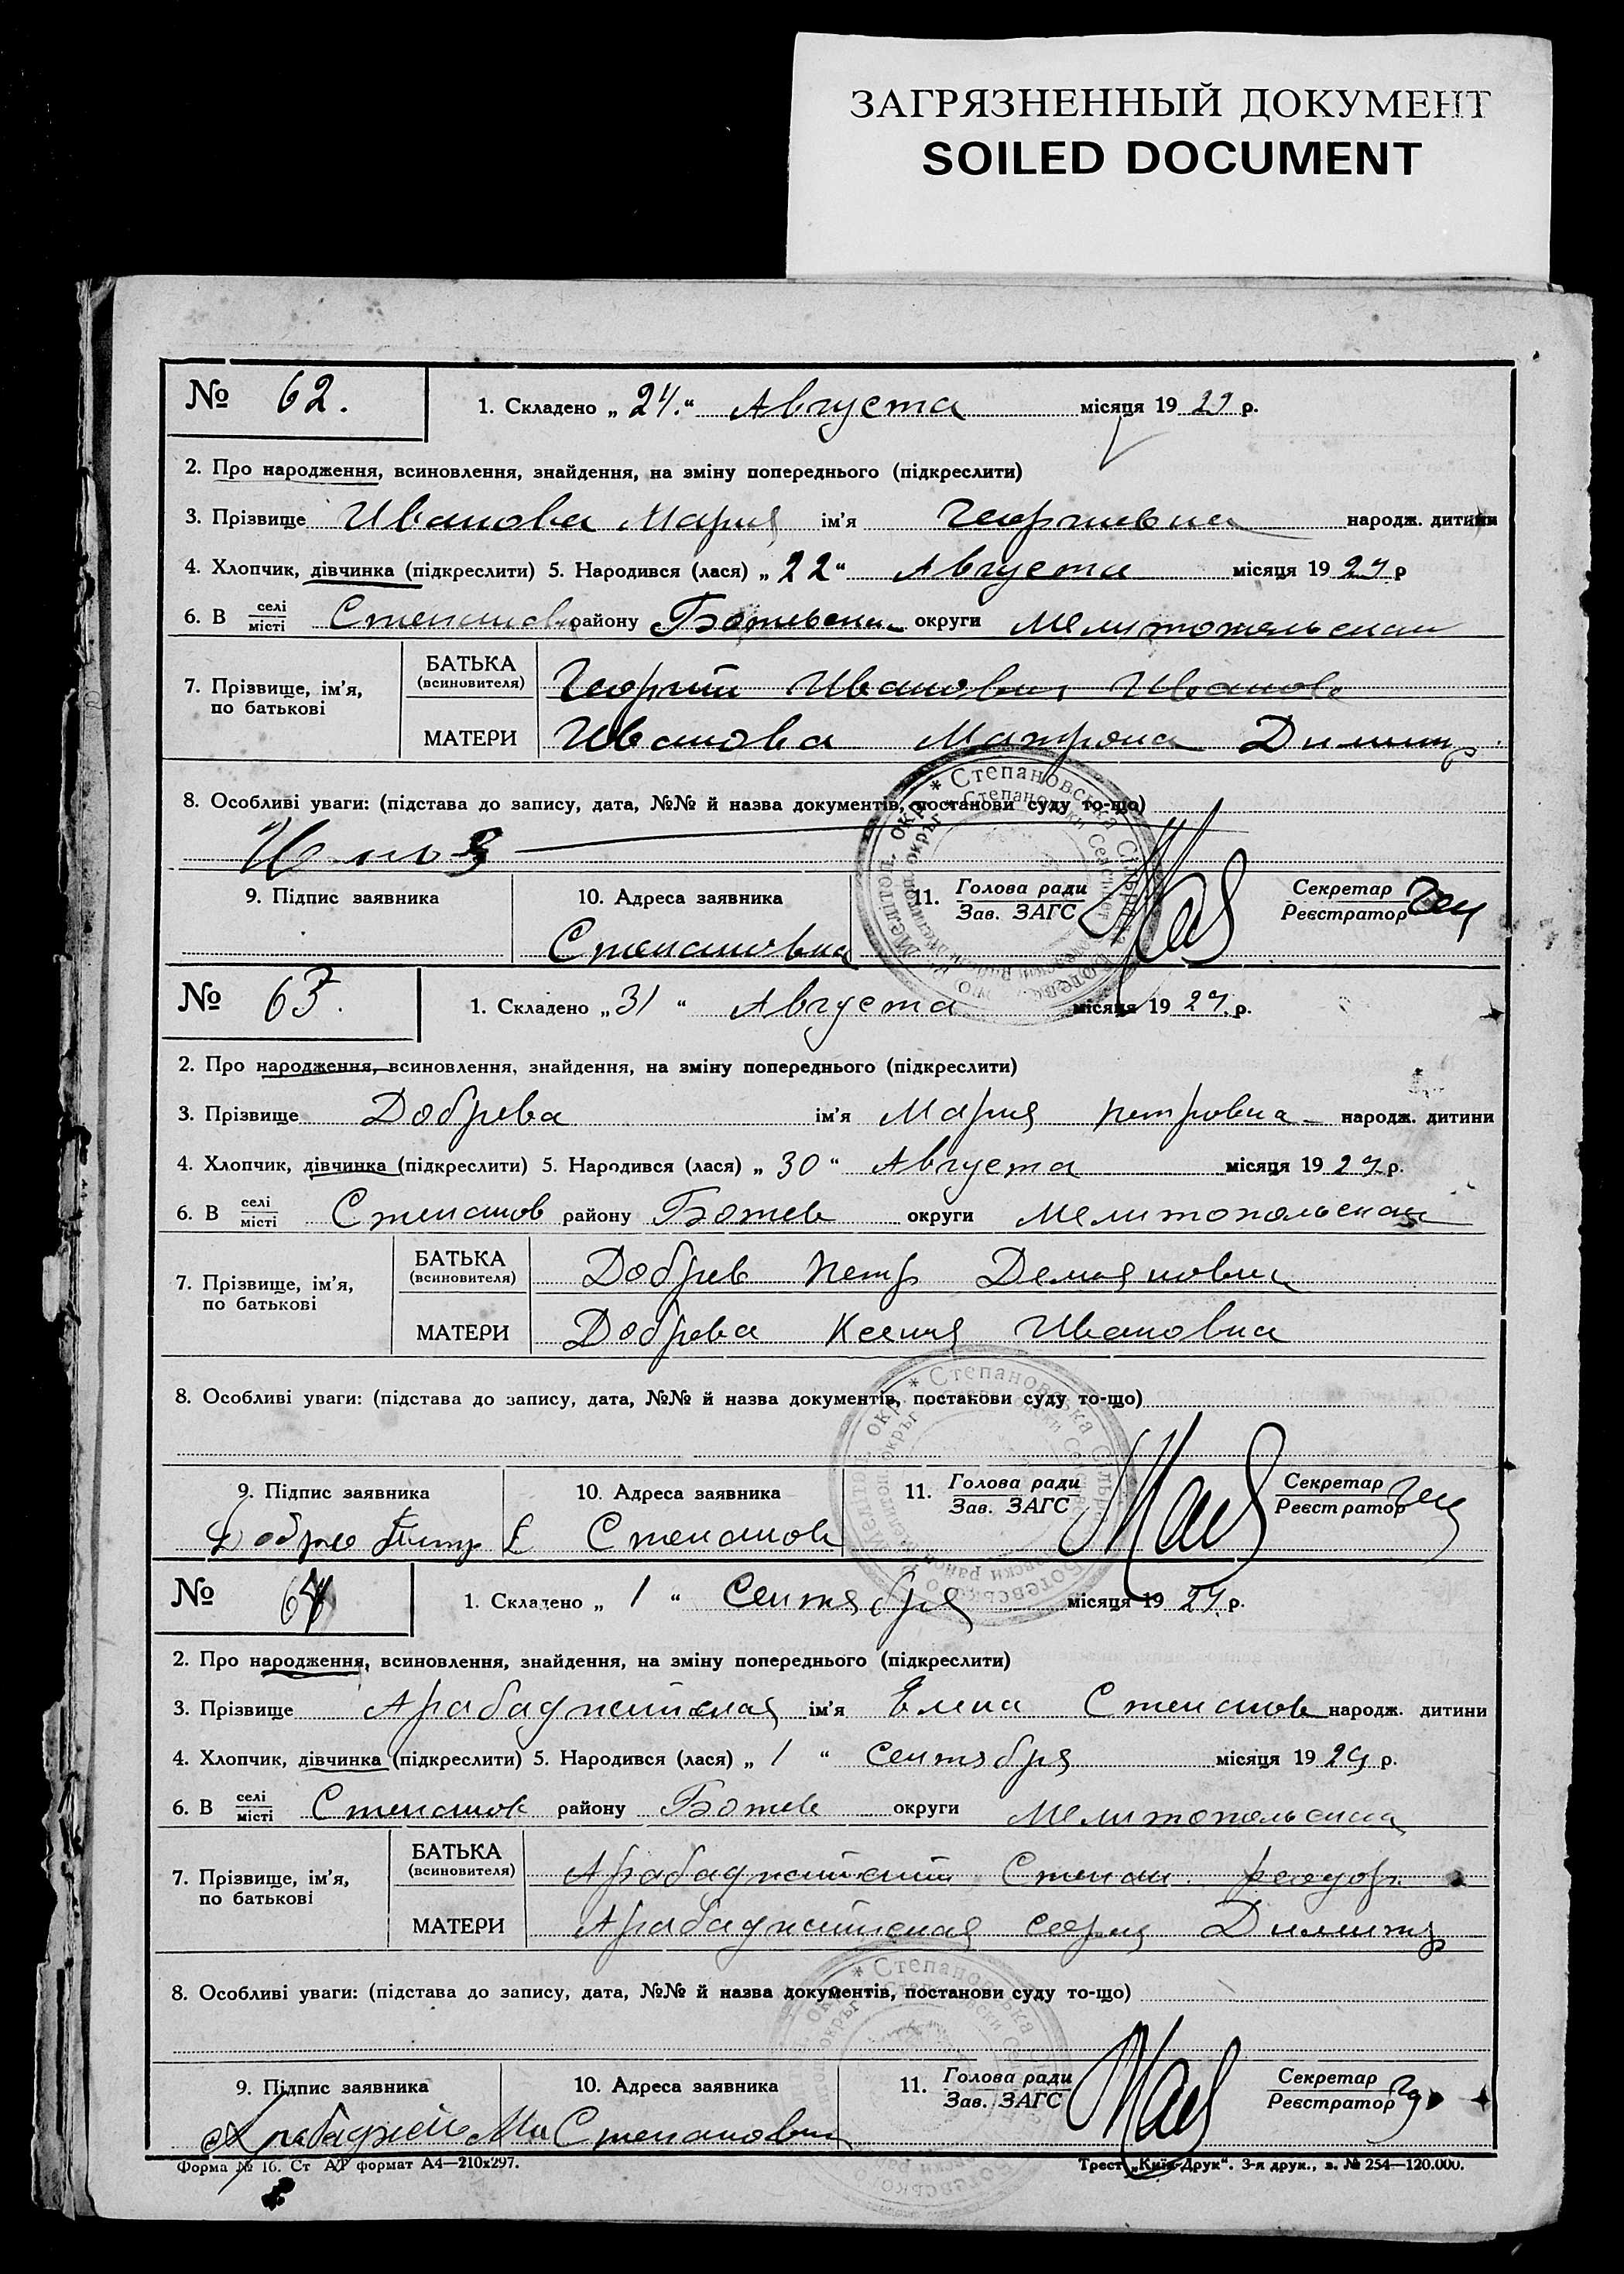 ЗАГРЯЗНЕННЫЙ ДОКУМЕНТ
SOILED DOCUMENT
№ 62. 1. Складено „24.“ Августа місяця 1929 р.
2. Про народження, всиновлення, знайдення, на зміну попереднього (підкреслити)
3. Прізвище Иванова Мария ім'я Георгиевна народж. дитини
4. Хлопчик, дівчинка (підкреслити) 5. Народився (лася) „22“ Августа місяця 1929 р
6. В селі/місті Степановк району Ботевский округи Мелитопольская
7. Прізвище, ім'я, по батькові
БАТЬКА (всиновителя) Георгий Иванович Иванов
МАТЕРИ Иванова Матрона Димитр.
8. Особливі уваги: (підстава до запису, дата, №№ й назва документів, постанови суду то-що)
9. Підпис заявника 10. Адреса заявника 11. Голова ради/Зав. ЗАГС Секретар/Реєстратор
Степановка
№ 63. 1. Складено „31“ Августа місяця 1929. р.
2. Про народження, всиновлення, знайдення, на зміну попереднього (підкреслити)
3. Прізвище Добрева ім'я Мария Петровна народж. дитини
4. Хлопчик, дівчинка (підкреслити) 5. Народився (лася) „30“ Августа місяця 1929 р.
6. В селі/місті Степанов району Ботев округи Мелитопольская
7. Прізвище, ім'я, по батькові
БАТЬКА (всиновителя) Добрев Петр Демянович
МАТЕРИ Добрева Ксения Ивановна
8. Особливі уваги: (підстава до запису, дата, №№ й назва документів, постанови суду то-що)
9. Підпис заявника 10. Адреса заявника 11. Голова ради/Зав. ЗАГС Секретар/Реєстратор
Степанов
№ 64 1. Складено „1“ Сентября місяця 1929. р.
2. Про народження, всиновлення, знайдення, на зміну попереднього (підкреслити)
3. Прізвище Арабаджийская ім'я Елена Степанов народж. дитини
4. Хлопчик, дівчинка (підкреслити) 5. Народився (лася) „1“ Сентября місяця 1929 р.
6. В селі/місті Степанов району Ботев округи Мелитопольска
7. Прізвище, ім'я, по батькові
БАТЬКА (всиновителя) Арабаджийский Степан Феодор
МАТЕРИ Арабаджийская София Димитр
8. Особливі уваги: (підстава до запису, дата, №№ й назва документів, постанови суду то-що)
9. Підпис заявника 10. Адреса заявника 11. Голова ради/Зав. ЗАГС Секретар/Реєстратор
Степановк
Форма № 16. Ст АД формат А4—210х297. Трест „Київ-Друк“. 3-я друк., з. № 254—120.000.